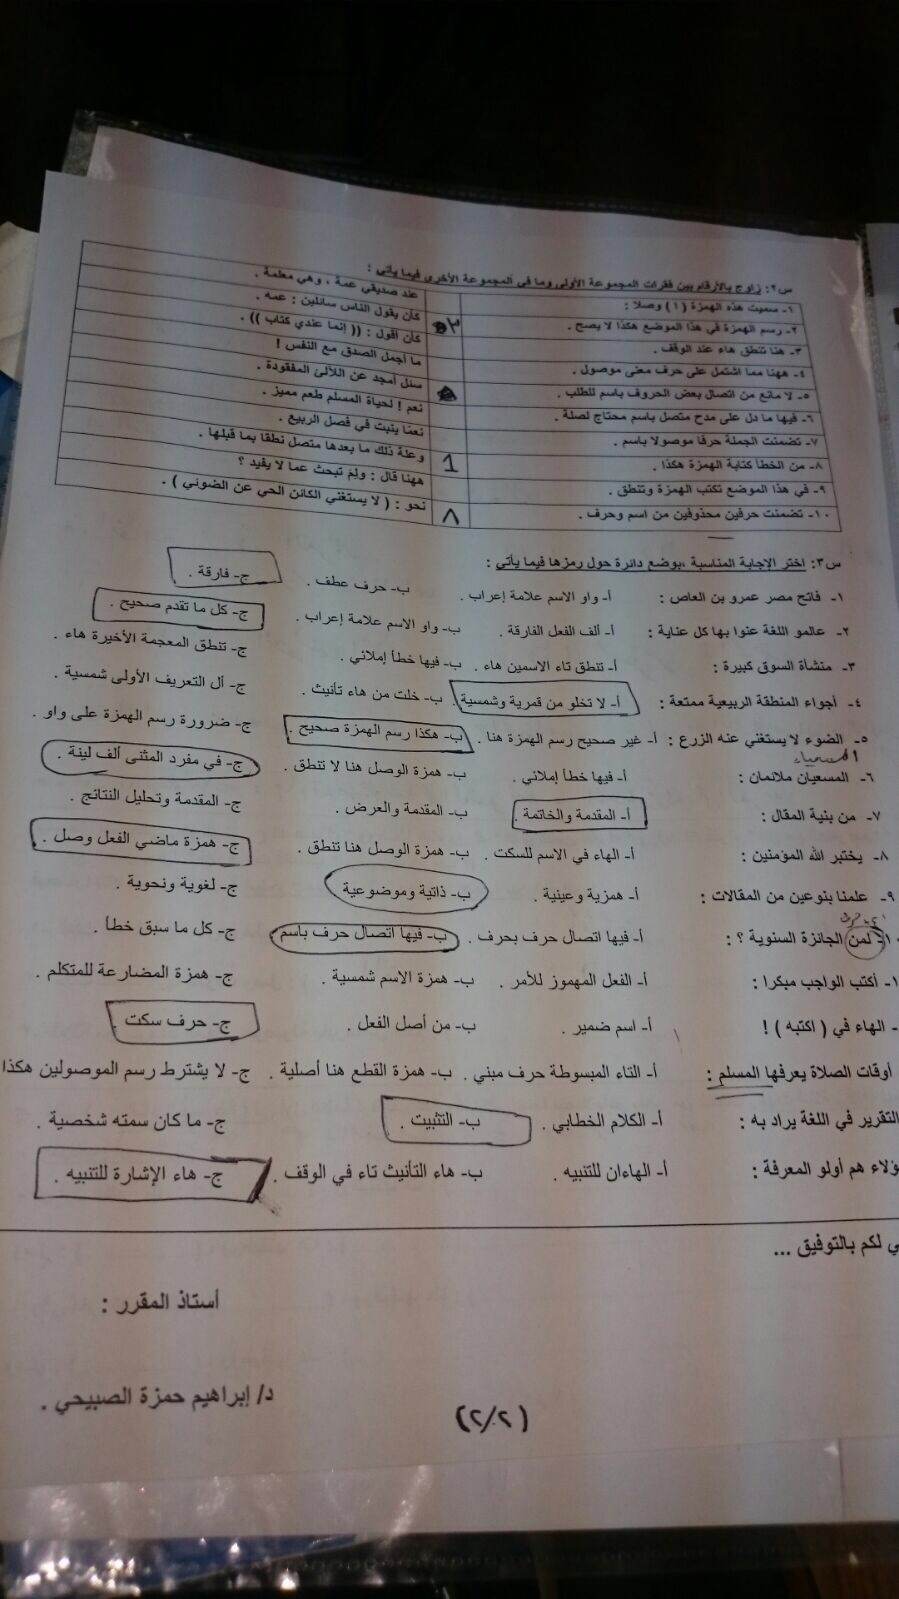 س٢: زاوج بالأرقام بين فقرات المجموعة الأولى وما في المجموعة الأخرى فيما يأتي :
١- سميت هذه الهمزة (١) وصلا : عند صديقي عمة ، وهي معلمة .
٢- رسم الهمزة في هذا الموضع هكذا لا يصح . ٣ كأن يقول الناس سائلين : عمه .
٣- هنا تنطق هاء عند الوقف . كأن أقول : (( إنما عندي كتاب )) .
٤- ههنا مما اشتمل على حرف معنى موصول . ما أجمل الصدق مع النفس !
٥- لا مانع من اتصال بعض الحروف باسم للطلب . سئل أمجد عن اللآلئ المفقودة .
٦- فيها ما دل على مدح متصل باسم محتاج لصلة . نعم ! لحياة المسلم طعم مميز .
٧- تضمنت الجملة حرفا موصولا باسم . نعمّا ينبت في فصل الربيع .
٨- من الخطأ كتابة الهمزة هكذا . 1 وعلة ذلك ما بعدها متصل نطقا بما قبلها .
٩- في هذا الموضع تكتب الهمزة وتنطق . ههنا قال : ولِمَ تبحث عما لا يفيد ؟
١٠- تضمنت حرفين محذوفين من اسم وحرف . ٨ نحو : ( لا يستغني الكائن الحي عن الضوئي ) .
س٣: اختر الإجابة المناسبة ،بوضع دائرة حول رمزها فيما يأتي :
١- فاتح مصر عمرو بن العاص : أ- واو الاسم علامة إعراب . ب- حرف عطف . ج- فارقة .
٢- عالمو اللغة عنوا بها كل عناية : أ- ألف الفعل الفارقة . ب- واو الاسم علامة إعراب . ج- كل ما تقدم صحيح .
٣- منشأة السوق كبيرة : أ- تنطق تاء الاسمين هاء . ب- فيها خطأ إملائي . ج- تنطق المعجمة الأخيرة هاء .
٤- أجواء المنطقة الربيعية ممتعة : أ- لا تخلو من قمرية وشمسية . ب- خلت من هاء تأنيث . ج- أل التعريف الأولى شمسية .
٥- الضوء لا يستغني عنه الزرع : أ- غير صحيح رسم الهمزة هنا . ب- هكذا رسم الهمزة صحيح . ج- ضرورة رسم الهمزة على واو .
٦- المسعيان ملائمان : أ- فيها خطأ إملائي . ب- همزة الوصل هنا لا تنطق . ج- في مفرد المثنى ألف لينة .
٧- من بنية المقال : أ- المقدمة والخاتمة . ب- المقدمة والعرض . ج- المقدمة وتحليل النتائج .
٨- يختبر الله المؤمنين : أ- الهاء في الاسم للسكت . ب- همزة الوصل هنا تنطق . ج- همزة ماضي الفعل وصل .
٩- علمنا بنوعين من المقالات : أ- همزية وعينية . ب- ذاتية وموضوعية . ج- لغوية ونحوية .
لمن الجائزة السنوية ؟ : أ- فيها اتصال حرف بحرف . ب- فيها اتصال حرف باسم . ج- كل ما سبق خطأ .
أكتب الواجب مبكرا : أ- الفعل المهموز للأمر . ب- همزة الاسم شمسية . ج- همزة المضارعة للمتكلم .
- الهاء في ( اكتبه ) ! أ- اسم ضمير . ب- من أصل الفعل . ج- حرف سكت .
أوقات الصلاة يعرفها المسلم : أ- التاء المبسوطة حرف مبني . ب- همزة القطع هنا أصلية . ج- لا يشترط رسم الموصولين هكذا
التقرير في اللغة يراد به : أ- الكلام الخطابي . ب- التثبيت . ج- ما كان سمته شخصية .
ؤلاء هم أولو المعرفة : أ- الهاءان للتنبيه . ب- هاء التأنيث تاء في الوقف . ج- هاء الإشارة للتنبيه .
ي لكم بالتوفيق ...
أستاذ المقرر :
د/ إبراهيم حمزة الصبيحي .
(٢/٢)